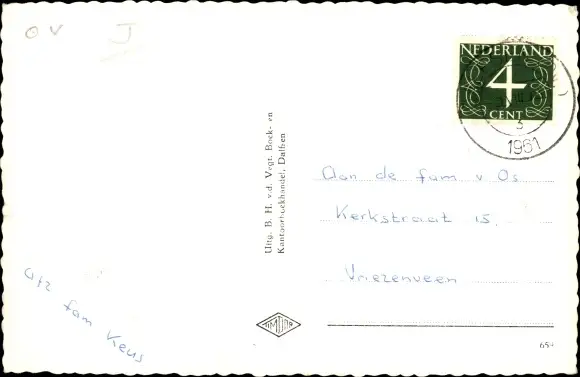 OV J
NEDERLAND
4
CENT
3
1961
Uitg. B. H. v.d. Vegt. Boek- en
Kantoorboekhandel, Dalfsen
Aan de fam v Os
Kerkstraat 15.
Vriezenveen
Afz fam Keus
654